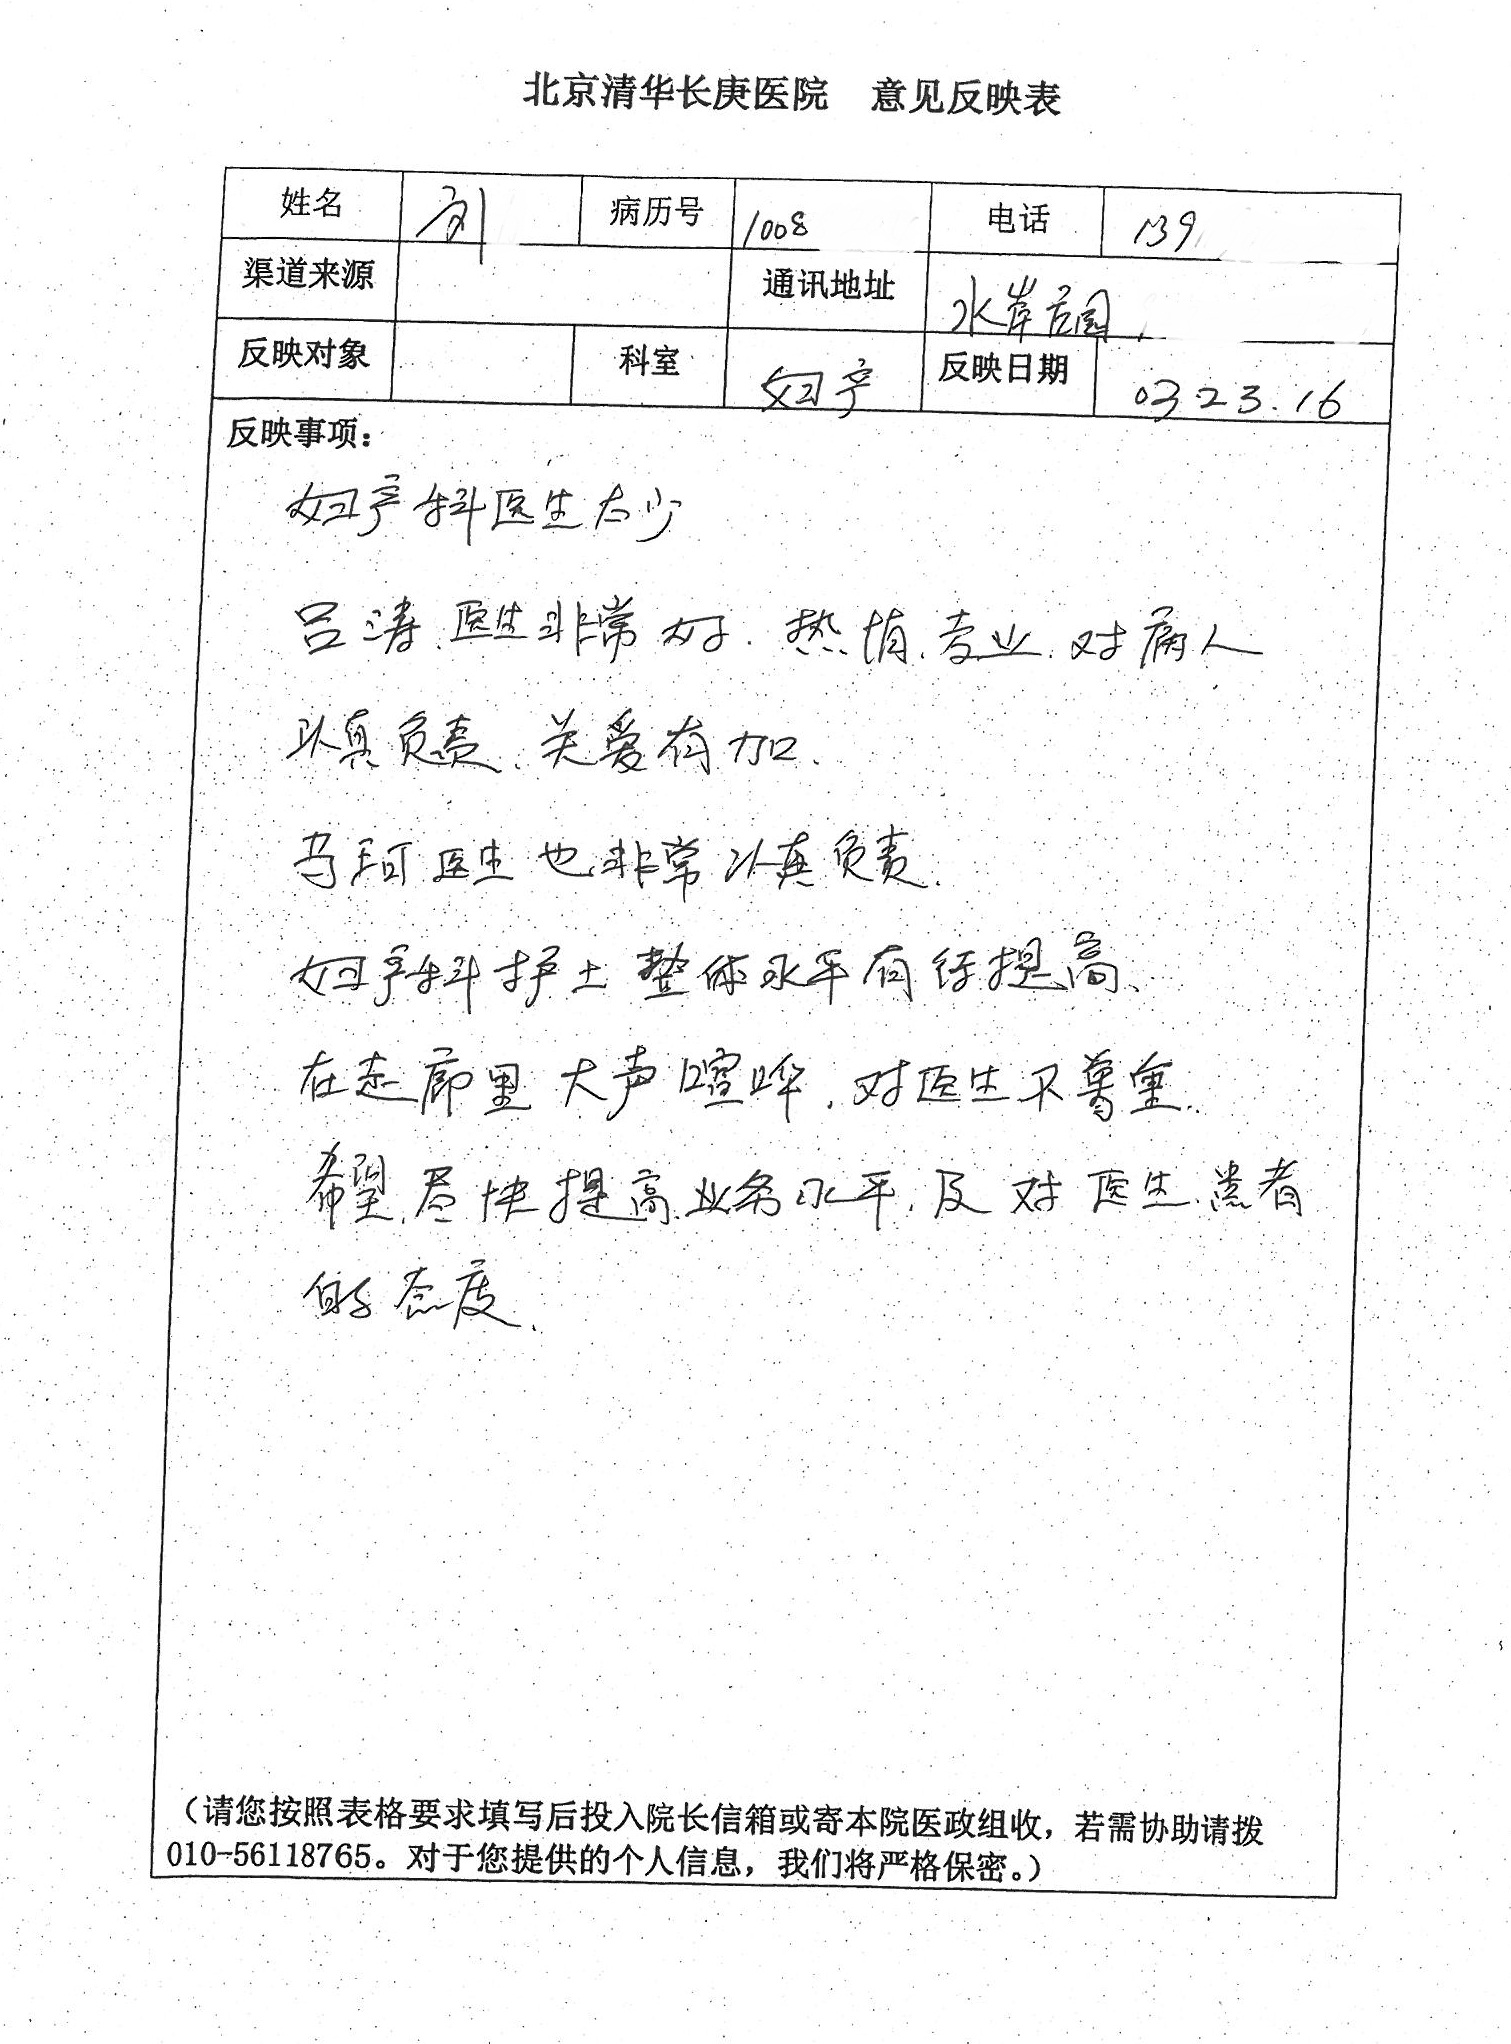 北京清华长庚医院 意见反映表
姓名 刘 病历号 1008 电话 139
渠道来源 通讯地址 水岸庄园
反映对象 科室 妇产 反映日期 03.23.16
反映事项：
妇产科医生太少
吕涛医生非常好.热情.专业.对病人
认真负责.关爱有加.
马珂医生也非常认真负责.
妇产科护士整体水平有待提高、
在走廊里大声喧哗.对医生不尊重.
希望尽快提高业务水平.及对医生.患者
的态度.
（请您按照表格要求填写后投入院长信箱或寄本院医政组收，若需协助请拨
010-56118765。对于您提供的个人信息，我们将严格保密。）